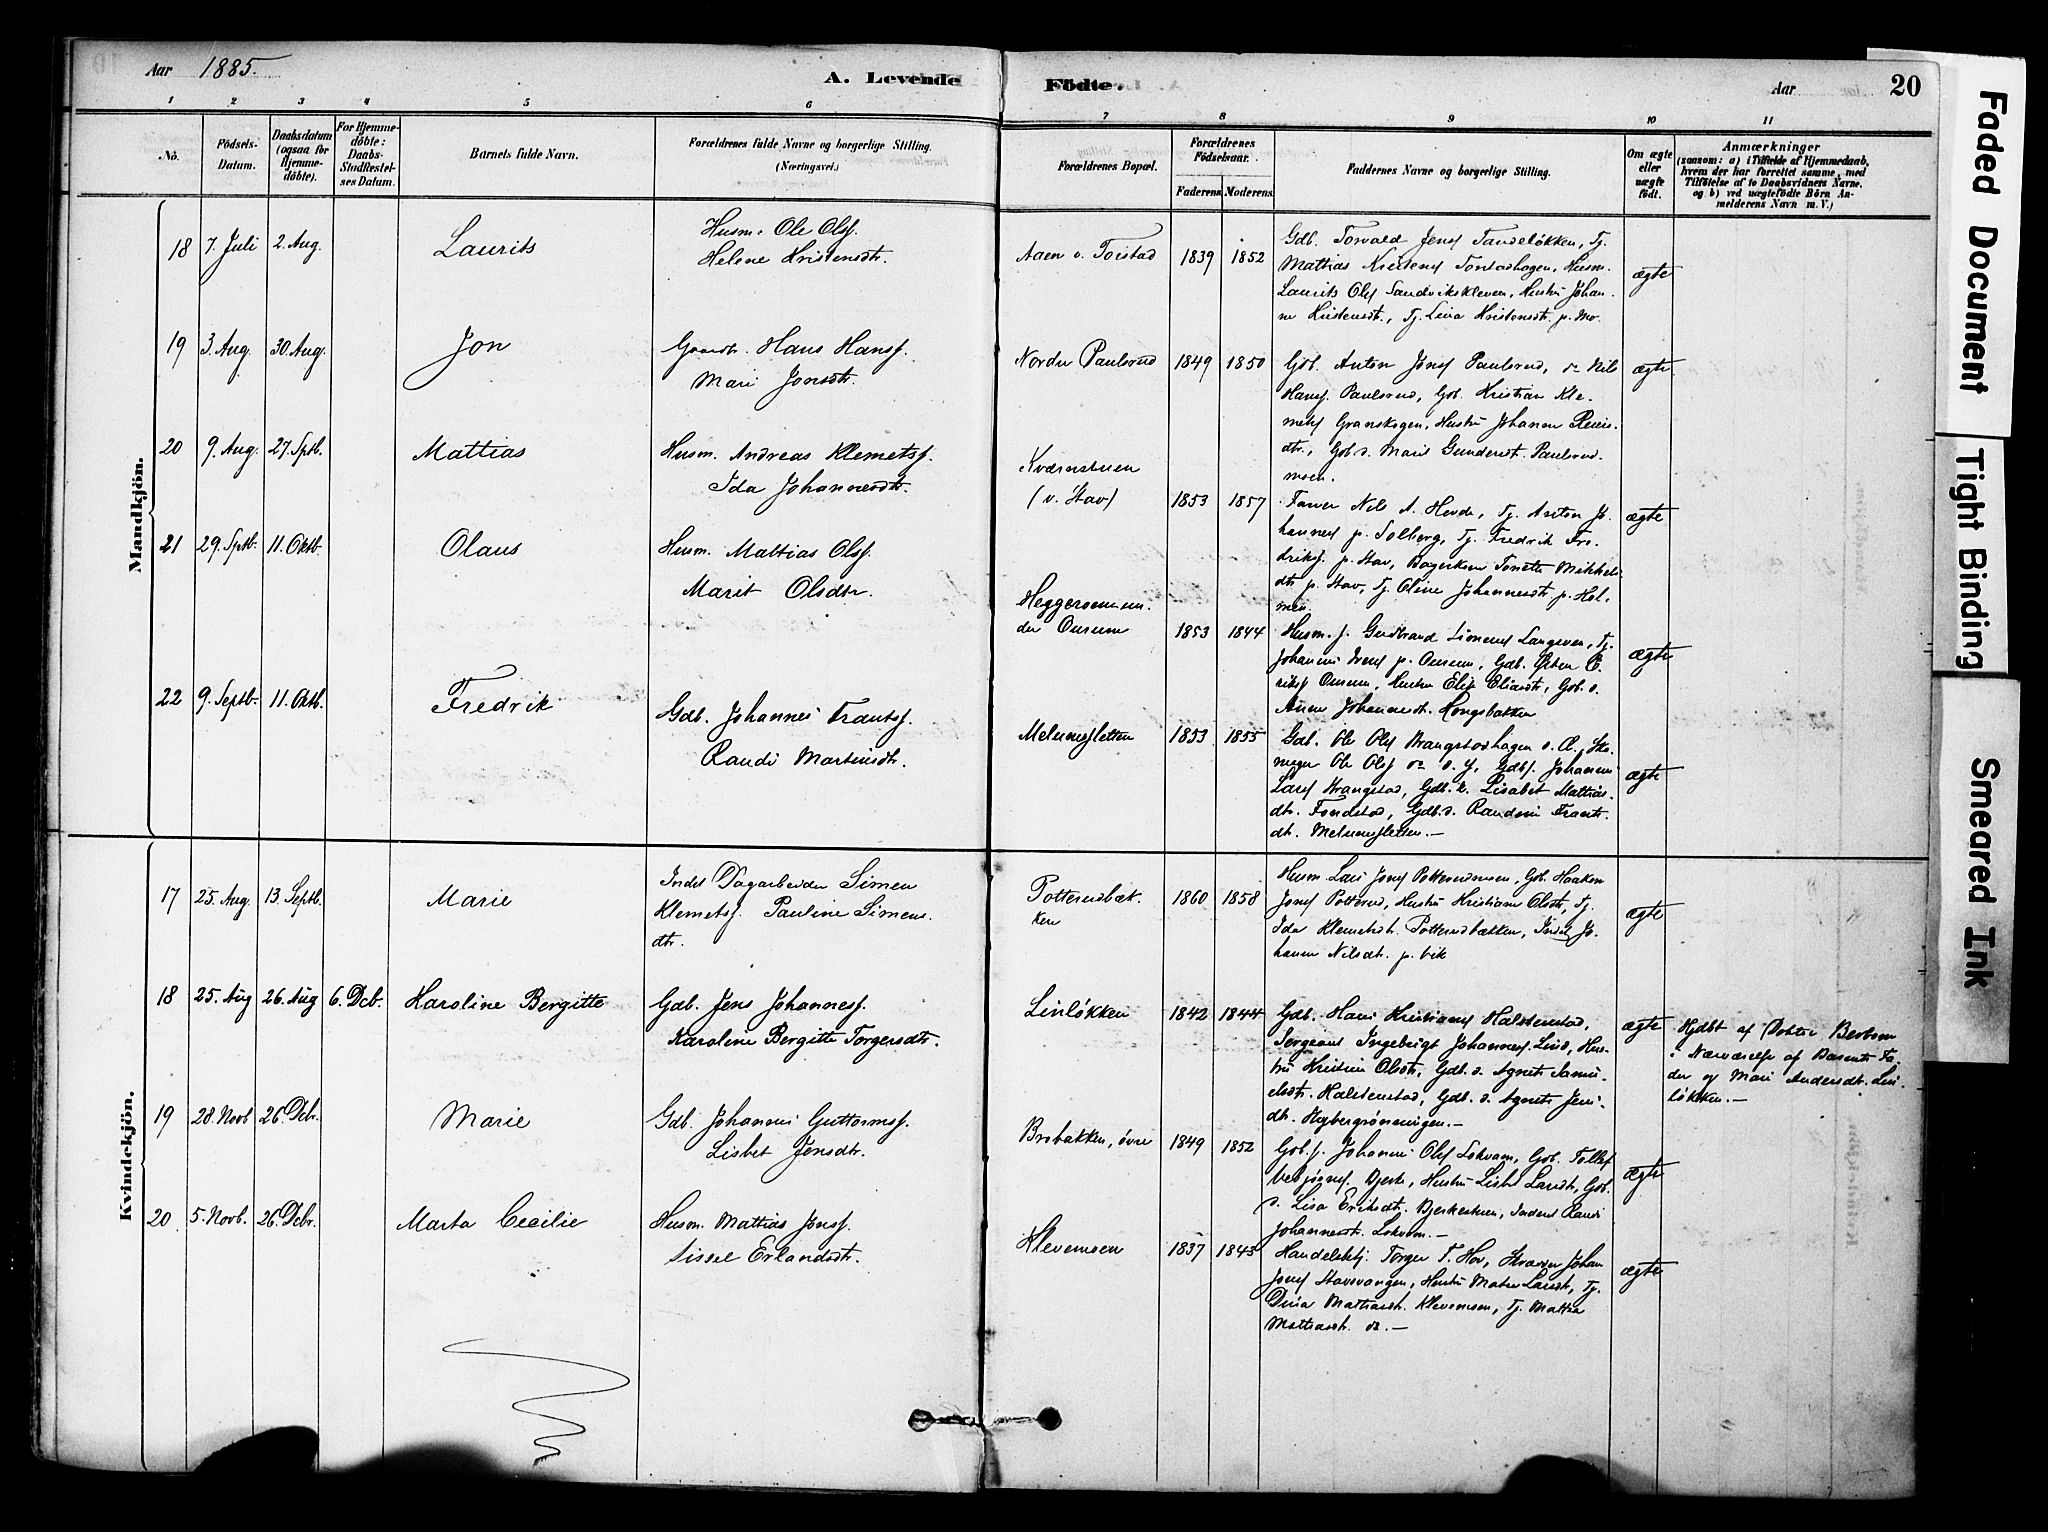 Aar 1885.
A. Levende Födte.
Aar
20
1 2 3 4 5 6 7 8 9 10 11
No.
Födsels-Datum.
Daabsdatum (ogsaa for Hjemme-döbte).
For Hjemme-döbte: Daabs-Stadfæstel-ses Datum.
Barnets fulde Navn.
Forældrenes fulde Navne og borgerlige Stilling. (Næringsvei.)
Forældrenes Bopæl.
Forældrenes Födselsaar.
Faderens. Moderens.
Faddernes Navne og borgerlige Stilling.
Om ægte eller uægte födt.
Anmærkninger
(saasom: a) i Tilfælde af Hjemmedaab, hvem der har forrettet samme, med Tilföielse af to Daabsvidners Navne, og b) ved uægtefödte Börn An-melderens Navn m. V.)
Mandkjön.
18 7. Juli 2. Aug. Laurits
Husm. Ole Olsf.
Helene Kristensdtr.
Aaen v. Toistad 1839 1852
Gdb. Torvald Jensf Tandeløkken, Tj.
Mattias
Laurits Olsf Sandvikskleven, Hustru Johan-
ne Kristensdtr., Tj. Lina Kristensdtr. p. Mo.
ægte
19 3. Aug. 30. Aug. Jon
Gaardbr. Hans Hansf.
Mari Jonsdtr.
Nordre Paulsrud 1849 1850
Gdb. Anton Jonsf Paulsrud, do Nils
Hansf. Paulsrud, Gdb. Kristian Kle-
metsf Granskogen, Hustru Johanne
dtr., Gdb.d. Marit Gundersdt. Paulsrud-
moen.
ægte
20 9. Aug. 27. Sptb. Mattias
Husm. Andreas Klemetsf.
Ida Johannesdtr.
Kværnstuen
(v. Stav) 1853 1857
Farver Nils A. Hovde, Tj. Anton Jo-
hannesf p. Solberg, Tj. Fredrik Fre-
driksf. p. Stav, Bagerkone Tonette Mikkels-
dtr p. Stav, Tj. Oline Johannesdtr. p. Hol-
men.
ægte
21 29. Sptb. 11. Oktb. Olaus
Husm. Mattias Olsf.
Marit Olsdtr.
1853 1844
Husm. f. Gudbrand Simensf Langsven, Tj.
Johannes Iversf p. Onsum, Gdb. Østen E-
riksf Onsum, Hustru Elise Eliasdtr., Gdb. d.
Anne Johannesdt. Kongsbakken
ægte
22 9. Septb. 11. Oktb. Fredrik
Gdb. Johannes Frantsf.
Randi Martinsdtr.
Melumsletten 1853 1855
Gdb. Ole Olsf
Ole Olsf do d. y., Gdbf. Johannes
Larsf Krangstad, Gdb. k. Lisabet Mattias-
dtr., Gdb.d. Randine Frants-
dt. Melumsletten.—
ægte
Kvindekjön.
17 25. Aug. 13. Septb. Marie
Inds. Dagarbeider Simen
Klemetsf. Pauline Simens-
dtr.
Potterudbæk-
ken 1860 1858
Husm Lars Jonsf Potterudmoen, Gdb. Haaken
Jonsf Potterud, Hustru Kristiane Olsdtr, Tj.
Ida Klemetsdt. Potterudbækken, Inds. Jo-
hanne Nilsdt. p. Vik
ægte
18 25. Aug 26. Aug 6. Dcb. Karoline Bergitte
Gdb. Jens Johannesf.
Karoline Bergitte Torgersdtr.
Linløkken 1842 1844
Gdb. Hans Kristiansf Halstenstad,
Sergeant Ingebrigt Johannesf. Lind, Hus-
tru Kristine Olsdtr, Gdb. d. Agnete Samu-
elsdtr. Halstenstad, Gdb. d. Agnete Jens-
dt. Nybergrønningen.—
ægte
Hjdbt af Doktor
i Nærværelse af Barnets Fa-
der og Mari Andersdt. Lin-
løkken.—
19 28. Novb 26. Dcbr. Marie
Gdb. Johannes Guttormsf.
Lisbet Jensdtr.
Brobakken, øvre 1849 1852
Gdb.f. Johannes Olsf Lokvam, Gdb. Tollef
Vebjørnsf. Bjerke, Hustru Lisbet Larsdt., Gdb.
d. Lisa Eriksdt. Bjerkestuen, Inderst Randi
Johannesdt. Lokvam.—
ægte
20 5. Novb. 26. Dcbr. Marta Cecilie
Husm. Mattias Jonsf.
Sissel Erlandsdtr.
Klevemoen 1837 1843
Handelsbetj. Torger T. Hov, Skrædder Johan
Jonsf Stavsvangen, Hustru Mater Larsdt, Tj.
Dina Mattiasdt. Klevemoen, Tj. Mattea
Mattiasdt. do.—
ægte
Faded Document
Tight Binding
Smeared Ink